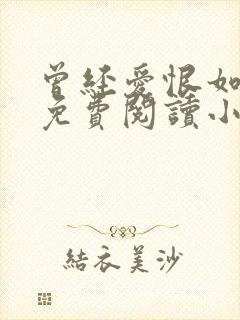 曾经爱恨如
免費閱讀小
結衣美沙